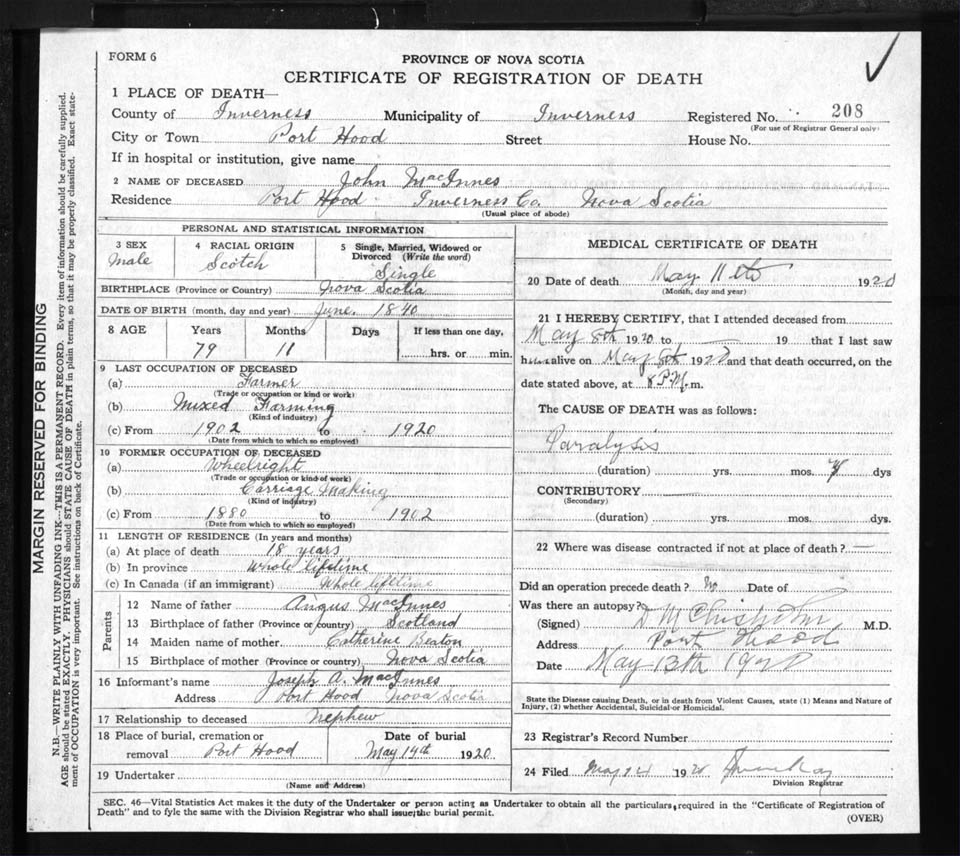 FORM 6
PROVINCE OF NOVA SCOTIA
CERTIFICATE OF REGISTRATION OF DEATH
1 PLACE OF DEATH—
County of Inverness Municipality of Inverness Registered No. 208
(For use of Registrar General only)
City or Town Port Hood Street House No.
If in hospital or institution, give name
2 NAME OF DECEASED John MacInnes
Residence Port Hood Inverness Co. Nova Scotia
(Usual place of abode)
PERSONAL AND STATISTICAL INFORMATION
3 SEX Male
4 RACIAL ORIGIN Scotch
5 Single, Married, Widowed or Divorced (Write the word) Single
BIRTHPLACE (Province or Country) Nova Scotia
DATE OF BIRTH (month, day and year) June. 1840
8 AGE Years Months Days If less than one day,
79 11 hrs. or min.
9 LAST OCCUPATION OF DECEASED
(a) Farmer
(Trade or occupation or kind or work)
(b) Mixed Farming
(Kind of industry)
(c) From 1902 to 1920
(Date from which to which so employed)
10 FORMER OCCUPATION OF DECEASED
(a) Wheelright
(Trade or occupation or kind of work)
(b) Carriage Making
(Kind of industry)
(c) From 1880 to 1902
(Date from which to which so employed)
11 LENGTH OF RESIDENCE (In years and months)
(a) At place of death 18 years
(b) In province Whole lifetime
(c) In Canada (if an immigrant) Whole lifetime
Parents
12 Name of father Angus MacInnes
13 Birthplace of father (Province or country) Scotland
14 Maiden name of mother Catherine Beaton
15 Birthplace of mother (Province or country) Nova Scotia
16 Informant's name Joseph A. MacInnes
Address Port Hood Nova Scotia
17 Relationship to deceased Nephew
18 Place of burial, cremation or Date of burial
removal Port Hood May 14th 1920
19 Undertaker
(Name and Address)
MEDICAL CERTIFICATE OF DEATH
20 Date of death May 11th 1920
(Month, day and year)
21 I HEREBY CERTIFY, that I attended deceased from
May 8th 1920 to — 19 that I last saw
him alive on May 8th 1920 and that death occurred, on the
date stated above, at 8 P.M. m.
The CAUSE OF DEATH was as follows:
Paralysis
(duration) yrs. mos. dys
CONTRIBUTORY
(Secondary)
(duration) yrs. mos. dys.
22 Where was disease contracted if not at place of death? —
Did an operation precede death? No Date of
Was there an autopsy?
(Signed) D M Chisholm M.D.
Address Port Hood
Date May 13th 1920
State the Disease causing Death, or in death from Violent Causes, state (1) Means and Nature of
Injury, (2) whether Accidental, Suicidal or Homicidal.
23 Registrar's Record Number
24 Filed May 1920
Division Registrar
SEC. 46—Vital Statistics Act makes it the duty of the Undertaker or person acting as Undertaker to obtain all the particulars required in the "Certificate of Registration of
Death" and to fyle the same with the Division Registrar who shall issue the burial permit.
(OVER)
MARGIN RESERVED FOR BINDING
N.B.—WRITE PLAINLY WITH UNFADING INK—THIS IS A PERMANENT RECORD. Every item of information should be carefully supplied.
AGE should be stated EXACTLY. PHYSICIANS should STATE CAUSE OF DEATH in plain terms, so that it may be properly classified. Exact state-
ment of OCCUPATION is very important. See instructions on back of Certificate.